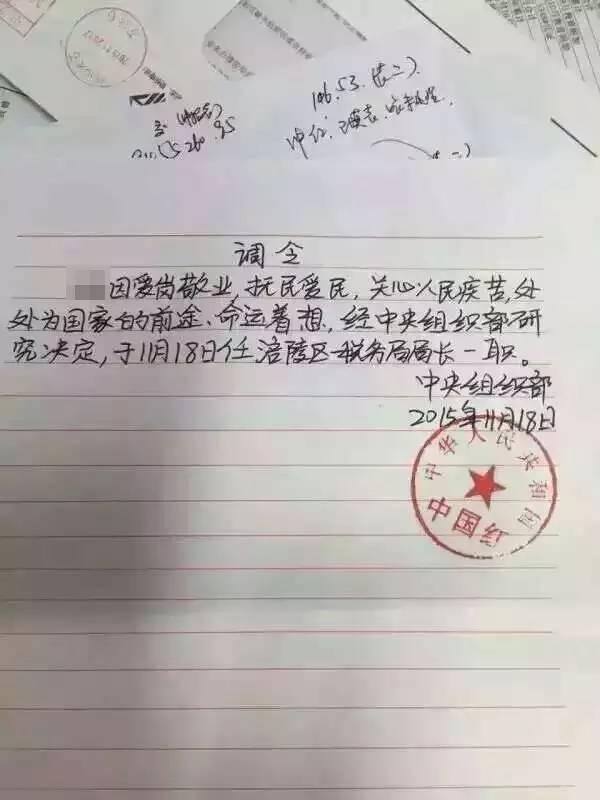 106.53.
260.95
调令
因爱岗敬业,抚民爱民,关心人民疾苦,处
处为国家的前途、命运着想,经中央组织部研
究决定,于11月18日任涪陵区税务局局长一职。
中央组织部
2015年11月18日
中华人民共和国
中国红